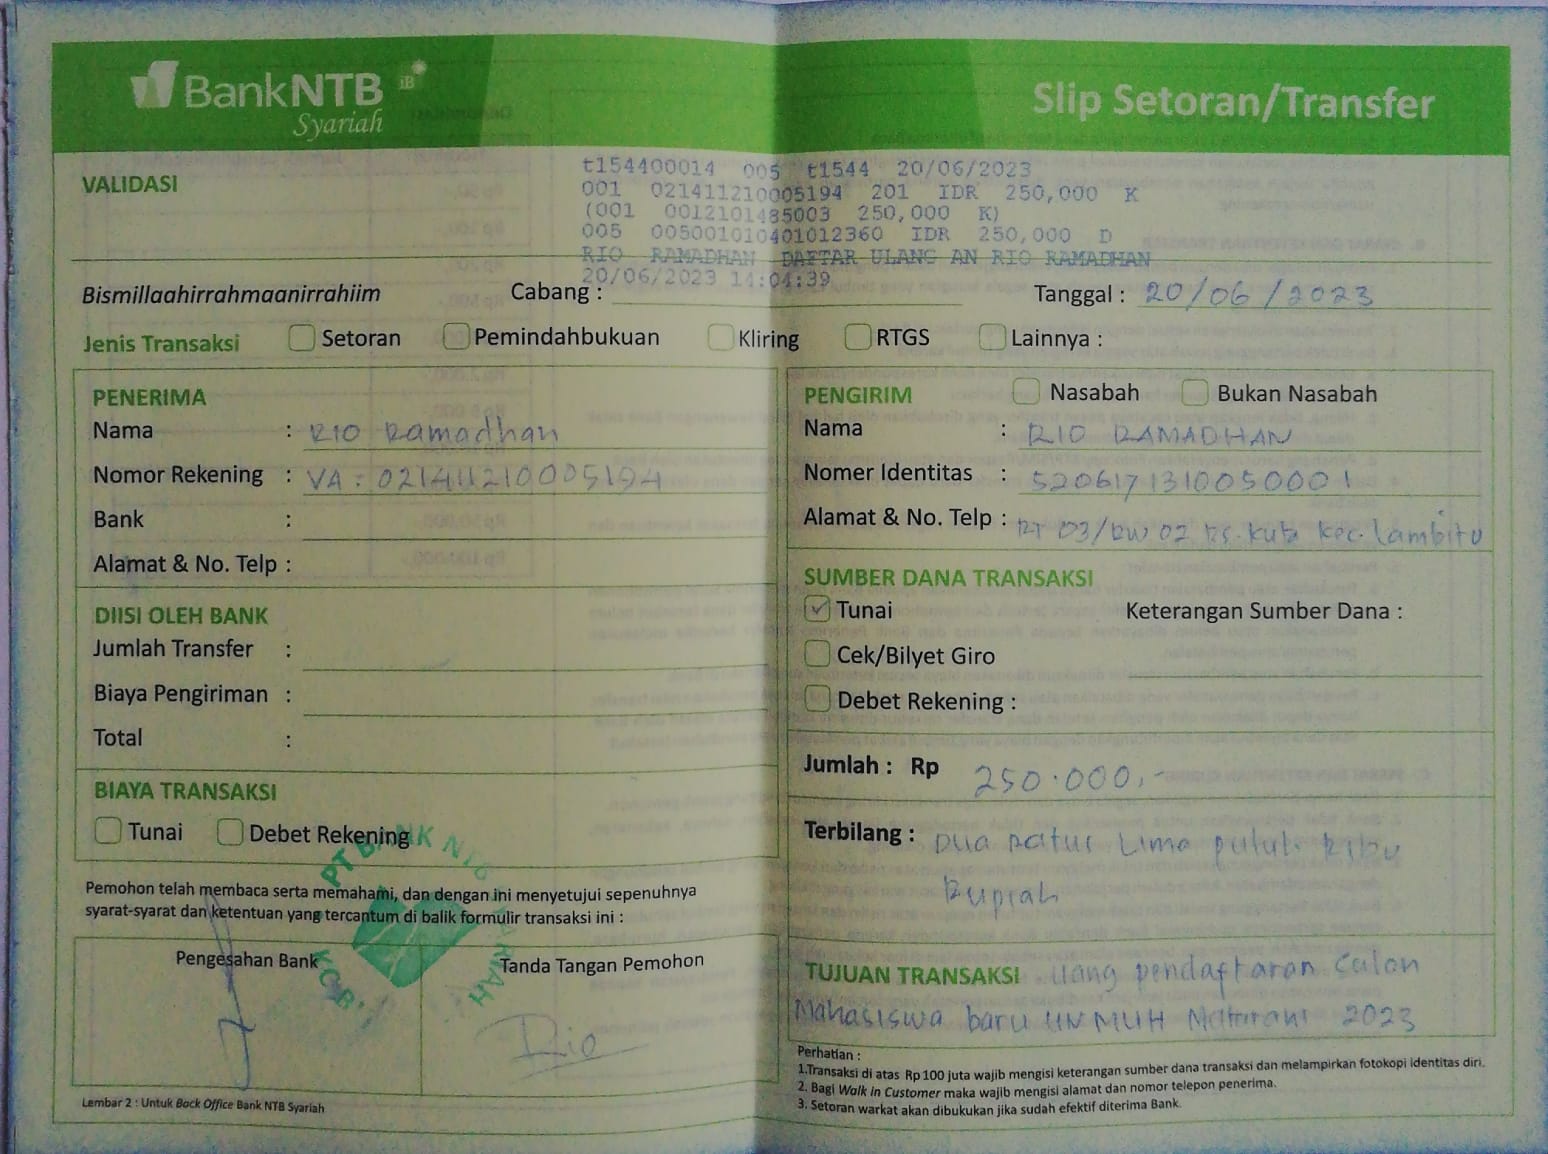 BankNTB iB
Syariah
Slip Setoran/Transfer
VALIDASI
t154400014 005 t1544 20/06/2023
001 021411210005194 201 IDR 250,000 K
(001 0012101485003 250,000 K)
005 005001010401012360 IDR 250,000 D
RIO RAMADHAN DAFTAR ULANG AN RIO RAMADHAN
20/06/2023 14:04:39
Bismillaahirrahmaanirrahiim Cabang : Tanggal : 20/06/2023
Jenis Transaksi Setoran Pemindahbukuan Kliring RTGS Lainnya :
PENERIMA
Nama : RIO Ramadhan
Nomor Rekening : VA : 021411210005194
Bank :
Alamat & No. Telp :
DIISI OLEH BANK
Jumlah Transfer :
Biaya Pengiriman :
Total :
BIAYA TRANSAKSI
Tunai Debet Rekening
Pemohon telah membaca serta memahami, dan dengan ini menyetujui sepenuhnya
syarat-syarat dan ketentuan yang tercantum di balik formulir transaksi ini :
Pengesahan Bank Tanda Tangan Pemohon
PT BANK NTB SYARIAH
Rio
Lembar 2 : Untuk Back Office Bank NTB Syariah
PENGIRIM Nasabah Bukan Nasabah
Nama : RIO RAMADHAN
Nomer Identitas : 5206171310050001
Alamat & No. Telp : RT 03/RW 02 Ds. Kuta Kec. Lambitu
SUMBER DANA TRANSAKSI
Tunai Keterangan Sumber Dana :
Cek/Bilyet Giro
Debet Rekening :
Jumlah : Rp 250.000,-
Terbilang : Dua Ratus Lima puluh Ribu
Rupiah
TUJUAN TRANSAKSI . Uang pendaftaran Calon
Mahasiswa baru UNMUH Mataram 2023
Perhatian :
1.Transaksi di atas Rp100 juta wajib mengisi keterangan sumber dana transaksi dan melampirkan fotokopi identitas diri.
2. Bagi Walk in Customer maka wajib mengisi alamat dan nomor telepon penerima.
3. Setoran warkat akan dibukukan jika sudah efektif diterima Bank.